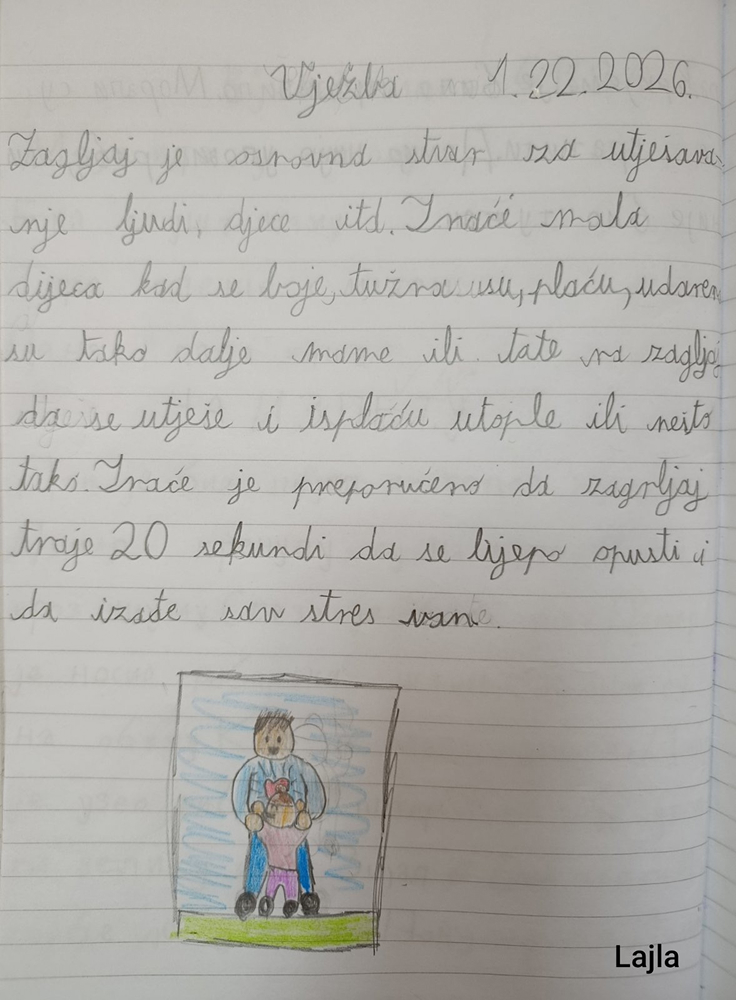 Vježba 1.22.2026.
Zagljaj je osnovna stvar za utješava-
nje ljudi, djece itd. Inaće mala
dijeca kad se boje, tužna su, plaću, udaren
su tako dalje mame ili tate na zaglja
da se utješe i isplaću utople ili nešto
tako. Inaće je preporućeno da zagrljaj
traje 20 sekundi da se lijepo opusti i
da izađe sav stres vane.
Lajla